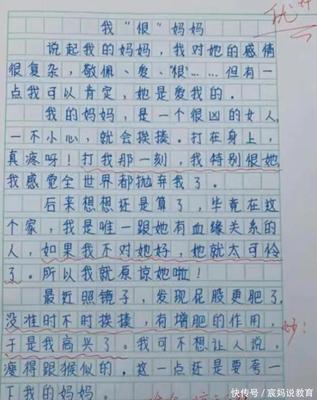 优
我“恨”妈妈
说起我的妈妈，我对她的感情
很复杂，敬佩、爱、“恨”……但有一
点我可以肯定，她是爱我的。
我的妈妈，是一个很凶的女人，
一不小心，就会挨揍。打在身上，
真疼呀！打我那一刻，我特别恨她
我感觉全世界都抛弃我了。
后来想想还是算了，毕竟在这
个家，我是唯一跟她有血缘关系的
人，如果我不对她好，她就太可怜
了。所以我就原谅她啦！
最近照镜子，发现屁股更肥了，
没准时不时挨揍，有增肥的作用，
于是我高兴了。我可不想让人说，
瘦得跟猴似的。这一点还是要夸一
下我的妈妈。
妙！
快传号／宸妈说教育